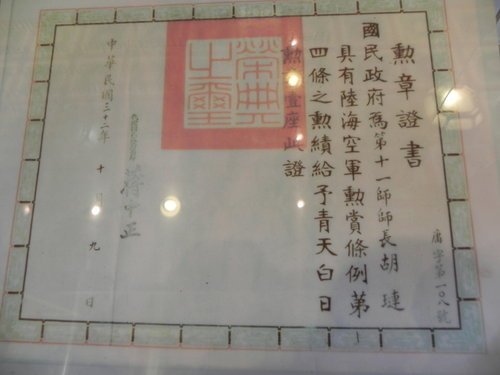 勲章證書
國民政府為第十一師師長胡璉
具有陸海空軍勲賞條例第
四條之勲績給予青天白日
勲章壹座此證
榮典之璽
蔣中正
中華民國三十二年十月九日
庸字第一〇八號